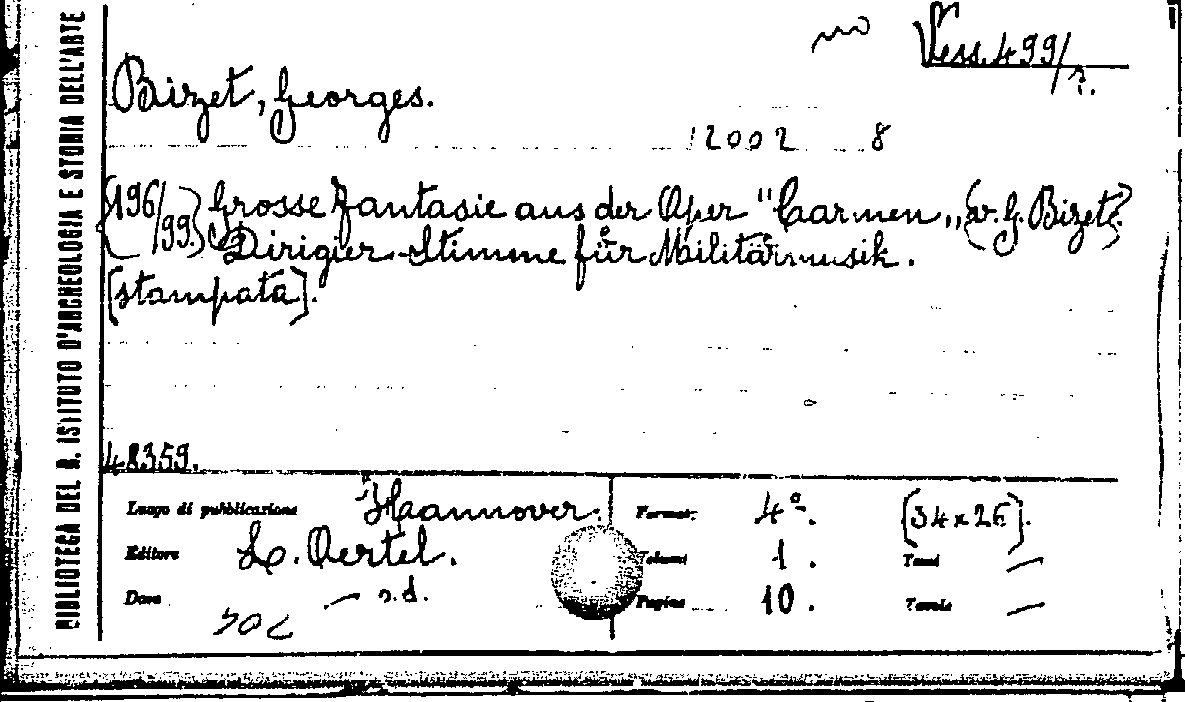 BIBLIOTECA DEL R. ISTITUTO D'ARCHEOLOGIA E STORIA DELL'ARTE
Vess. 499/
Bizet, Georges.
12002 8
{196/99} Grosse Fantasie aus der Oper "Carmen„ {v. G. Bizet}.
Dirigier-Stimme für Militärmusik.
[stampata].
48359.
Luogo di pubblicazione Hannover. Formato 4º. [34x26].
Editore L. Oertel. Volumi 1. Tomi —
Data — s.d. Pagine 10. Tavole —